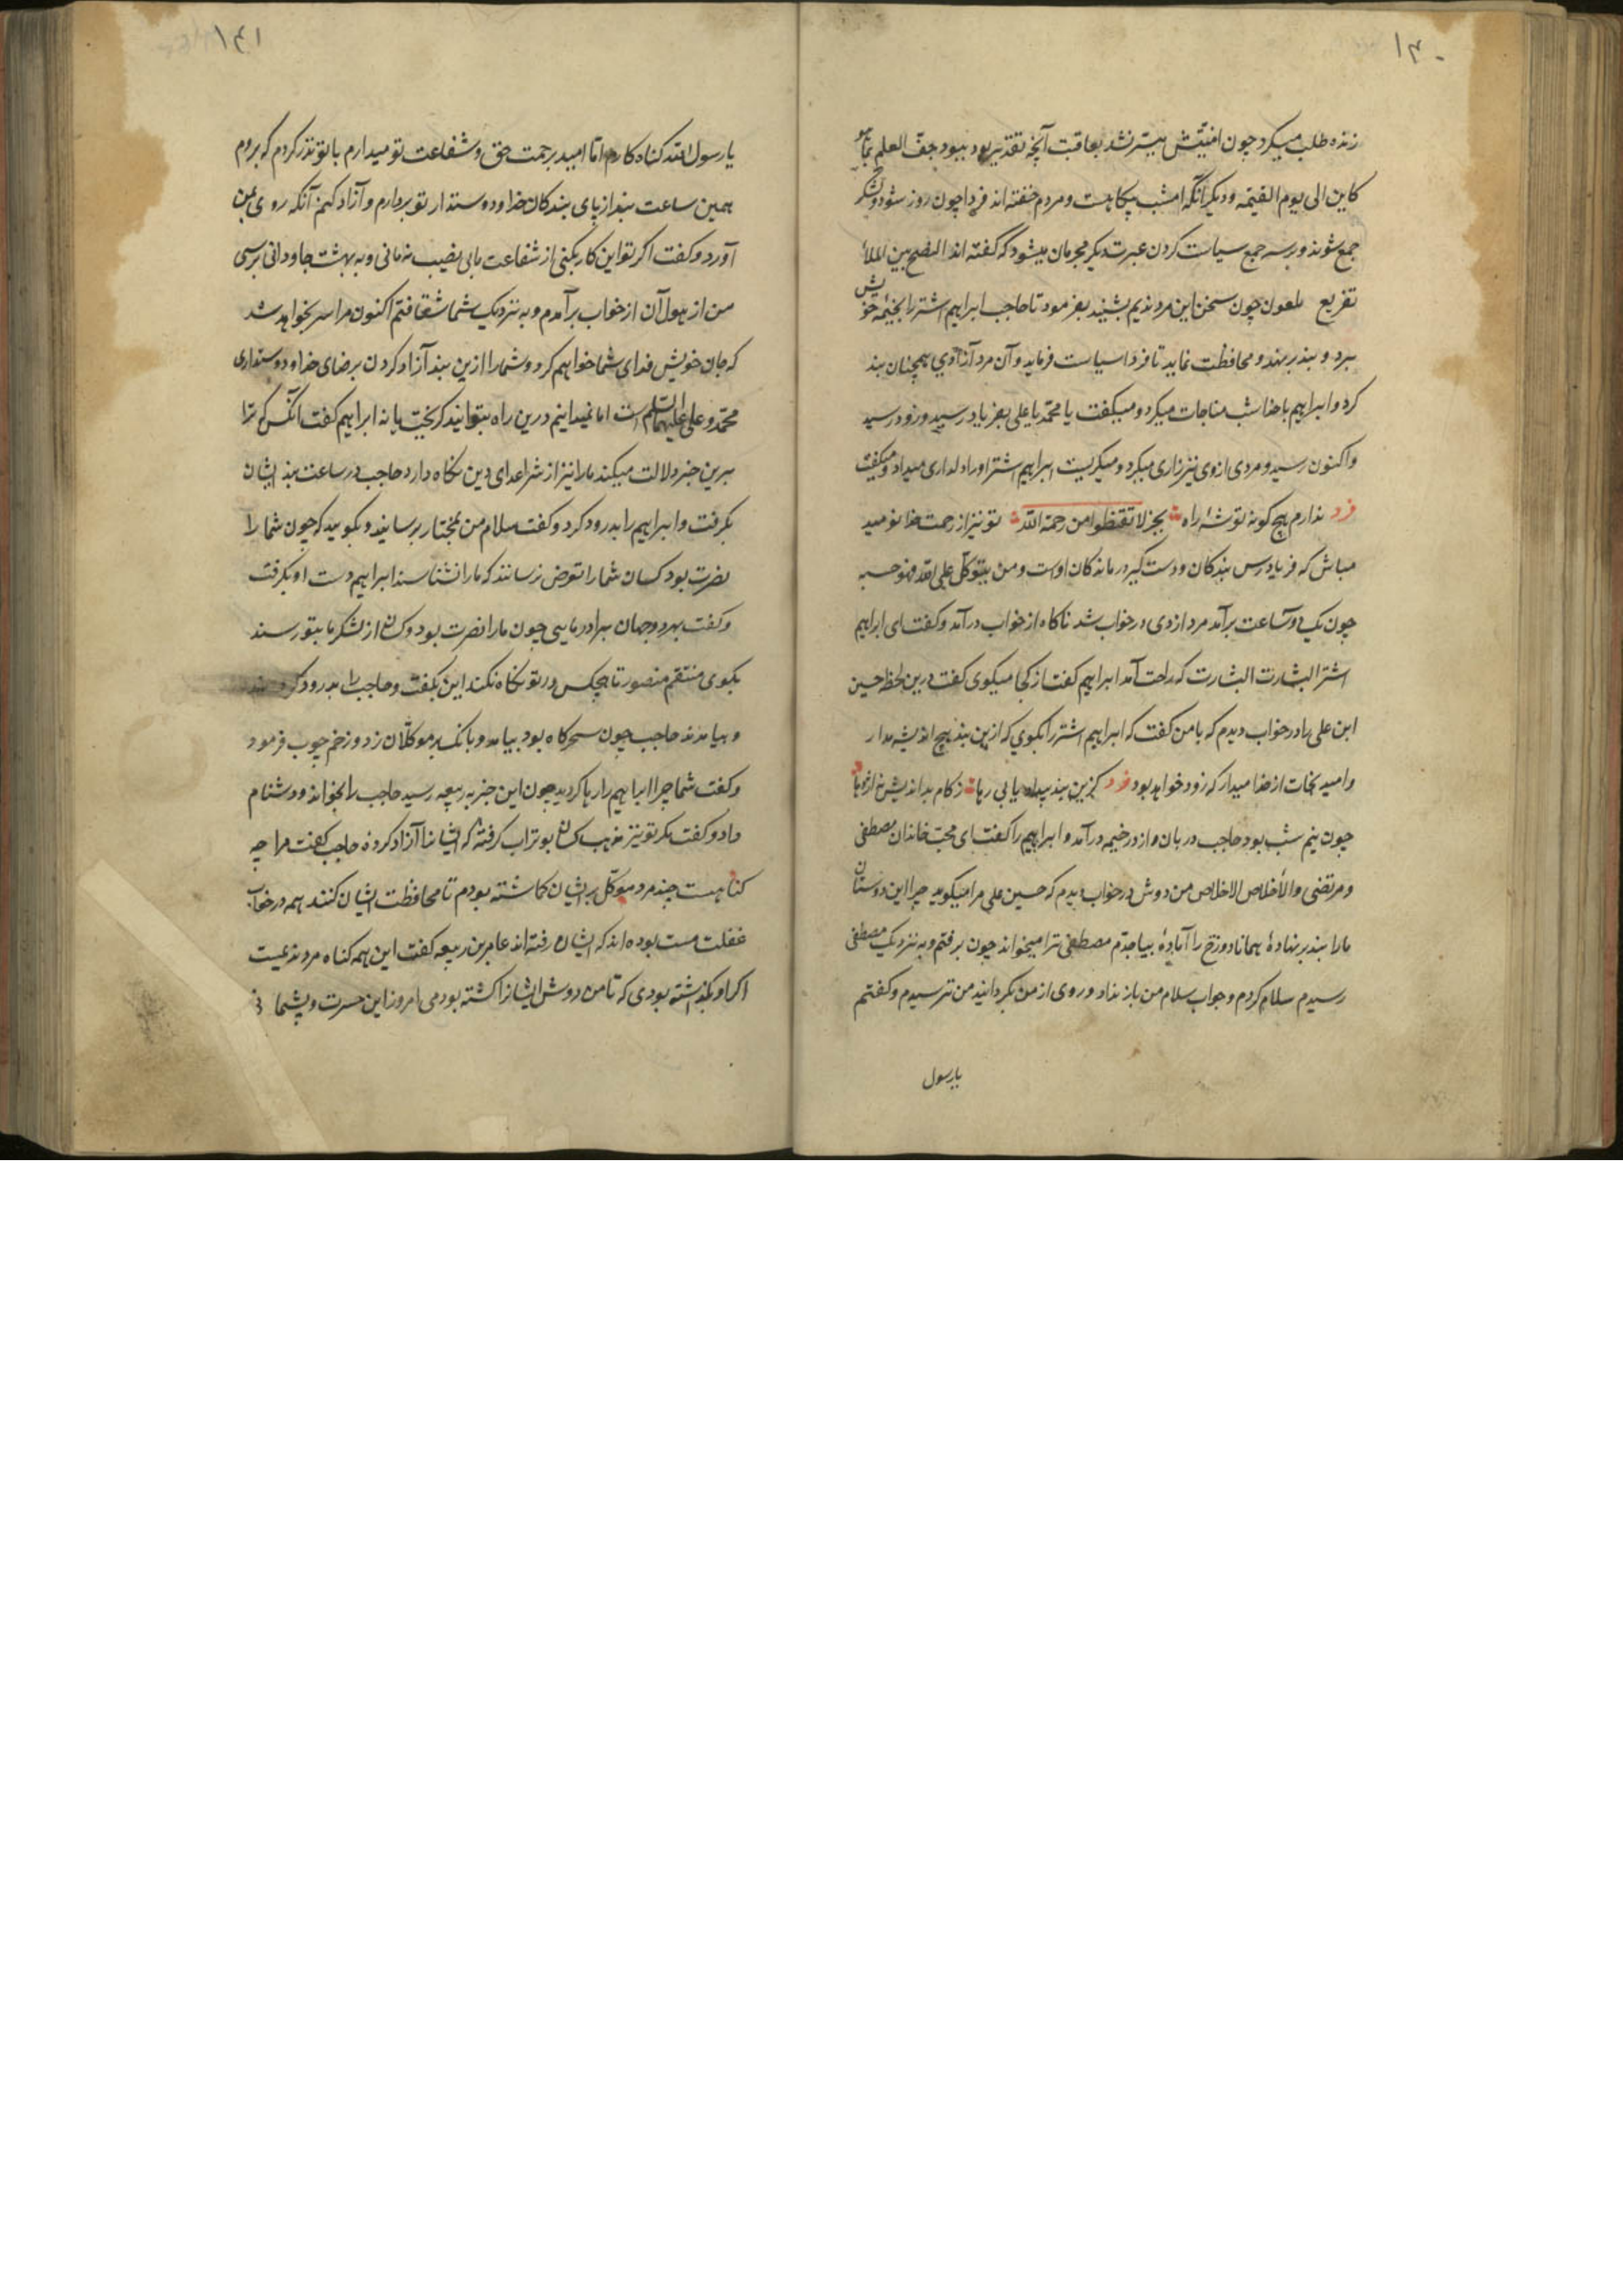 ۱۴۰
زنده طلب میکرد چون افتیش میسر نشد بعاقبت آنچه تقدیر بود ببود جف القلم بما هو
کاین الی یوم القیمه و دیگر آنکه امشب بیکاهست و مردم خفته اند فردا چون روز شود و لشکر
جمع شوند و بر سر جمع سیاست کردن عبرت دیگر مجرمان میشود که گفته اند النصح بین الملاء
تقریع ملعون چون سخن این مرد ندیم بشنید بفرمود تا حاجب ابراهیم اشتر را بخیمه خویش
برد و بند بر نهد و محافظت نماید تا فردا سیاست فرماید و آن مرد آزادوی همچنان بند
کرد و ابراهیم با خدا شب مناجات میکرد و میکفت یا محمد یا علی بفریاد رسید و زود رسید
و اکنون رسید و مردی ازوی نیز زاری میکرد و میکریست ابراهیم اشتر او را دلداری میداد و میکفت
فرد ندارم هیچ کونه توشهٔ راه بجز لا تقنطوا من رحمة الله تو نیز از رحمت خدا نومید
مباش که فریادرس بندکان و دست کیر درماندکان اوست و من یتوکل علی الله فهو حسبه
چون یک دو ساعت برآمد مرد ازدی در خواب شد ناکاه از خواب درآمد و کفت ای ابراهیم
اشتر البشارت البشارت که راحت آمد ابراهیم کفت از کجا میکوی کفت درین لحظه حسین
ابن علی را در خواب دیدم که با من کفت که ابراهیم اشتر را بکوی که ازین بند هیچ اندیشه مدار
و امید نجات از خدا میدار که زود خواهد بود فرد کزین بند بیداد یابی رها ز کام بداندیش نر اژدها
چون نیم شب بود حاجب دربان و از در خیمه درآمد و ابراهیم را کفت ای محب خاندان مصطفی
و مرتضی والاخلاص الاخلاص من دوش در خواب دیدم که حسین علی مرا میکوید چرا این دوستان
مارا بند بر نهادهٔ همانا دوزخ را آمادهٔ بیا جدم مصطفی ترا میخواند چون برفتم و به نزدیک مصطفی
رسیدم سلام کردم و جواب سلام من باز نداد و روی از من بکردانید من ترسیدم و کفتم
یا رسول
۱۴۱
یا رسول الله کناه کارم اما امید برحمت حق و شفاعت تو میدارم با تو نذر کردم که بروم
همین ساعت بند از پای بندکان خدا و دوستدار تو بردارم و آزاد کنم آنکه روی بمن
آورد و کفت اکر تو این کار بکنی از شفاعت ما بی نصیب نمانی و به بهشت جاودانی برسی
من از هول آن از خواب برآمدم و به نزدیک شما شتافتم اکنون مرا سر بخواهد شد
که جان خویش فدای شما خواهم کرد و شمارا ازین بند آزاد کردن برضای خدا و دوستداری
محمد و علی علیهما السلام است اما نمیدانیم درین راه بتوانید کریخت یا نه ابراهیم کفت آنکس که ترا
برین خبر دلالت میکند مارا نیز از شر اعدای دین نکاه دارد حاجب در ساعت بند ایشان
بکرفت و ابراهیم را بدرود کرد و کفت سلام من بمختار برسانید و بکویید که چون شما را
نصرت بود کسان شمارا تعرض نرسانند که مارا نشناسند ابراهیم دست او بکرفت
و کفت بهر دو جهان برادر مایی چون مارا نصرت بود و کسان از لشکر ما بتو رسند
بکوی منتقم منصور تا هیچکس در تو نکاه نکند این بکفت و حاجب را بدرود کردند
و بیامدند حاجب چون سحرکاه بود بیامد و بانک بر موکلان زد و زخم چوب فرمود
و کفت شما چرا ابراهیم را رها کردید چون این خبر به ربیعه رسید حاجب را بخواند و دشنام
داد و کفت مکر تو نیز مذهب کسان بوتراب کرفتهٔ که ایشانرا آزاد کردهٔ حاجب کفت مرا چه
کناهست چند مرد موکل بر ایشان کماشته بودم تا محافظت ایشان کنند همه در خواب
غفلت مست بوده اند که ایشان رفته اند عامر بن ربیعه کفت این همه کناه مرد ندیمست
اکر او بکذاشته بودی که تا من دوش ایشانرا کشته بودمی امروز این حسرت و پشیمانی